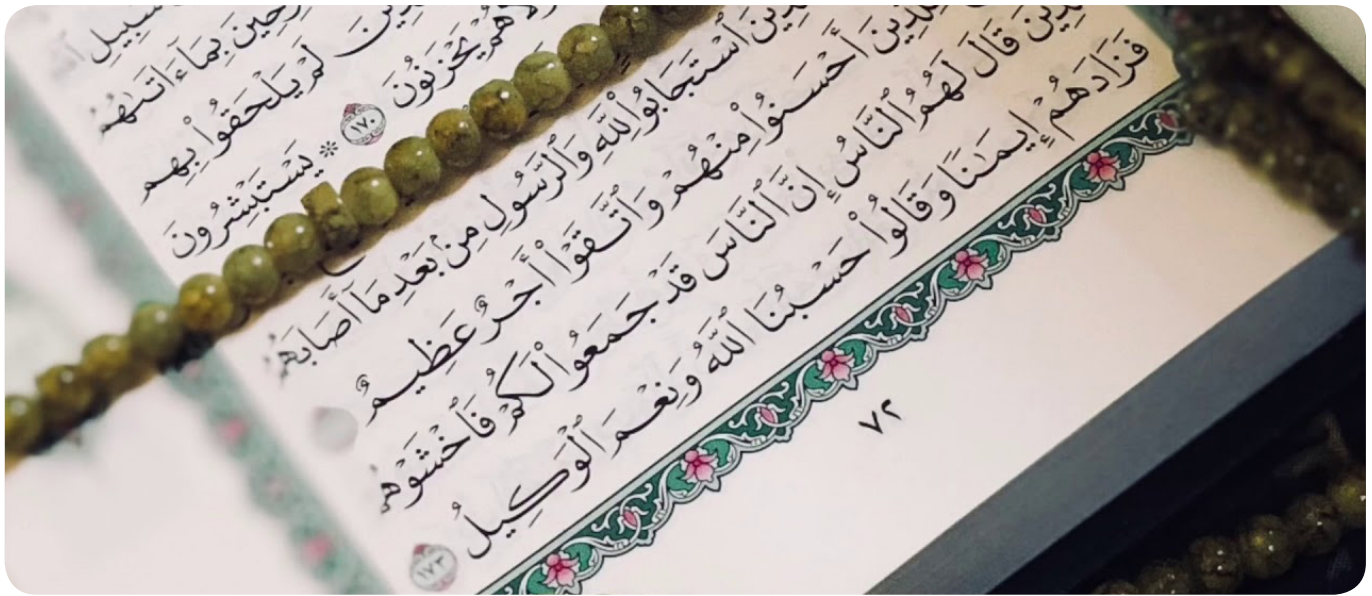 سَبِيلِ
فَرِحِينَ بِمَآ ءَاتَىٰهُمُ
لَمْ يَلْحَقُوا۟ بِهِم
هُمْ يَحْزَنُونَ ١٧٠ * يَسْتَبْشِرُونَ
ٱسْتَجَابُوا۟ لِلَّهِ وَٱلرَّسُولِ مِنۢ بَعْدِ مَآ أَصَابَهُمُ
لِلَّذِينَ أَحْسَنُوا۟ مِنْهُمْ وَٱتَّقَوْا۟ أَجْرٌ عَظِيمٌ
ٱلَّذِينَ قَالَ لَهُمُ ٱلنَّاسُ إِنَّ ٱلنَّاسَ قَدْ جَمَعُوا۟ لَكُمْ فَٱخْشَوْهُمْ
فَزَادَهُمْ إِيمَـٰنًا وَقَالُوا۟ حَسْبُنَا ٱللَّهُ وَنِعْمَ ٱلْوَكِيلُ ١٧٣
٧٢